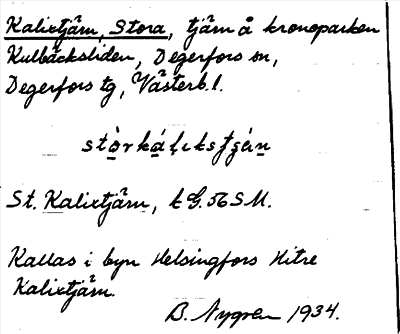 Kalixtjärn, Stora, tjärn å kronoparken
Kulbäcksliden, Degerfors sn,
Degerfors tg, Västerb. l.
St. Kalixtjärn, k G. 56 S.M.
Kallas i byn Helsingfors Hitre
Kalixtjärn.
B. Nygren 1934.